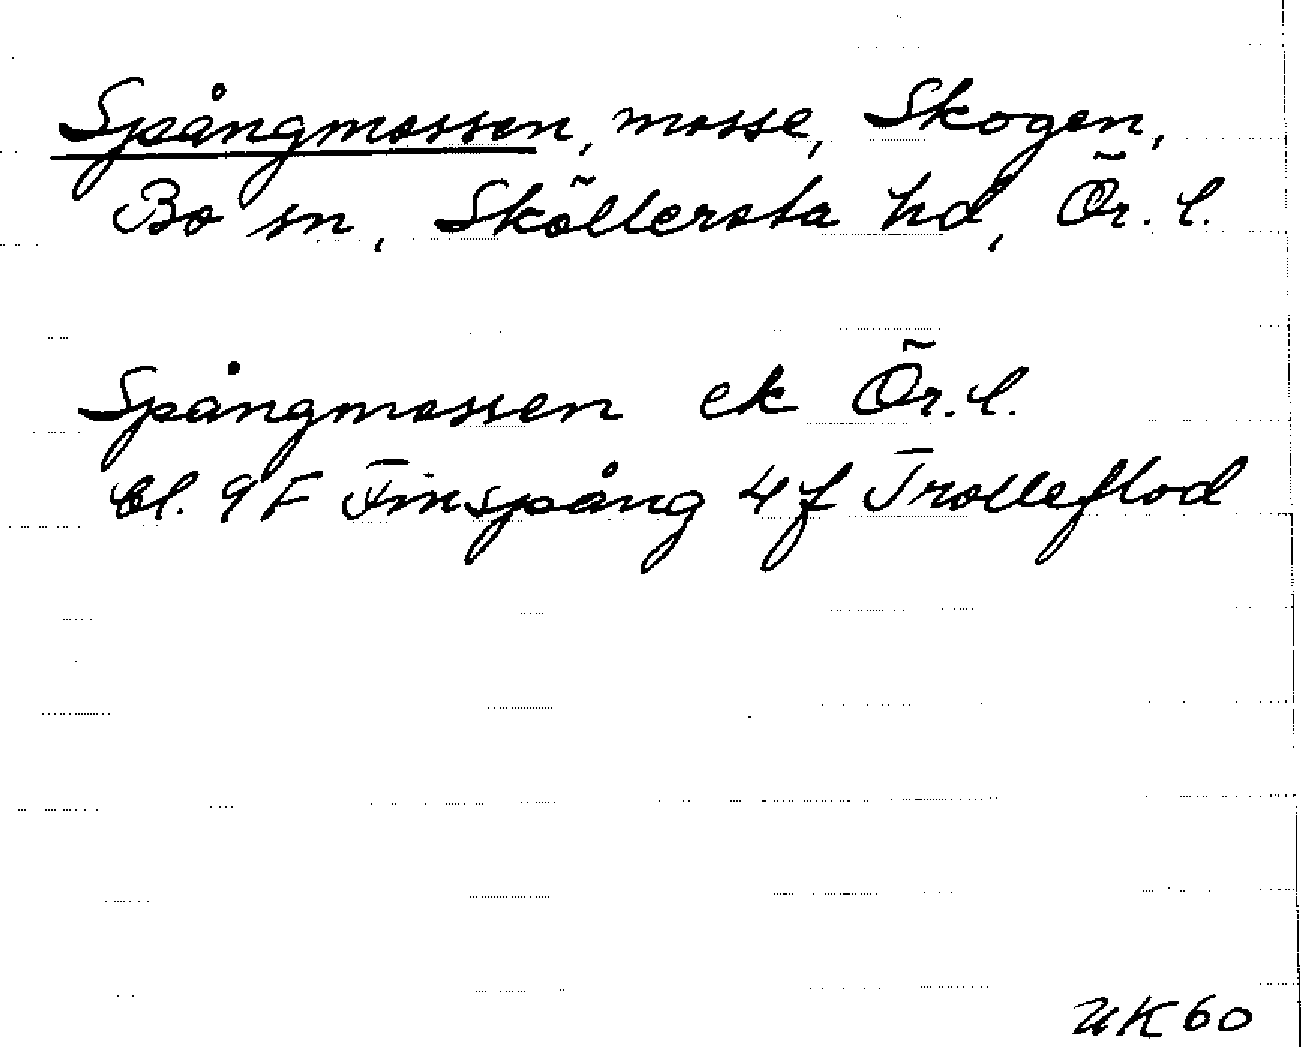 Spångmossen, mosse, Skogen,
Bo sn, Sköllersta hd, Ör. l.
Spångmossen ek Ör. l.
bl. 9F Finspång 4f Trolleflod
UK60